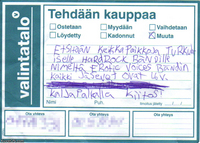 valintatalo
Tehdään kauppaa
Ostetaan Myydään Vaihdetaan
Löydetty Kadonnut Muuta
Etsitään keikkapaikkoja Turkula
iselle HardRock bändille
nimeltä Erotic Voices Bändin
kaikki jäsenet ovat 14v.
kaljapalkalla KIITOST
Nimi Puh.
Ota yhteys Ota yhteys Ota yhteys